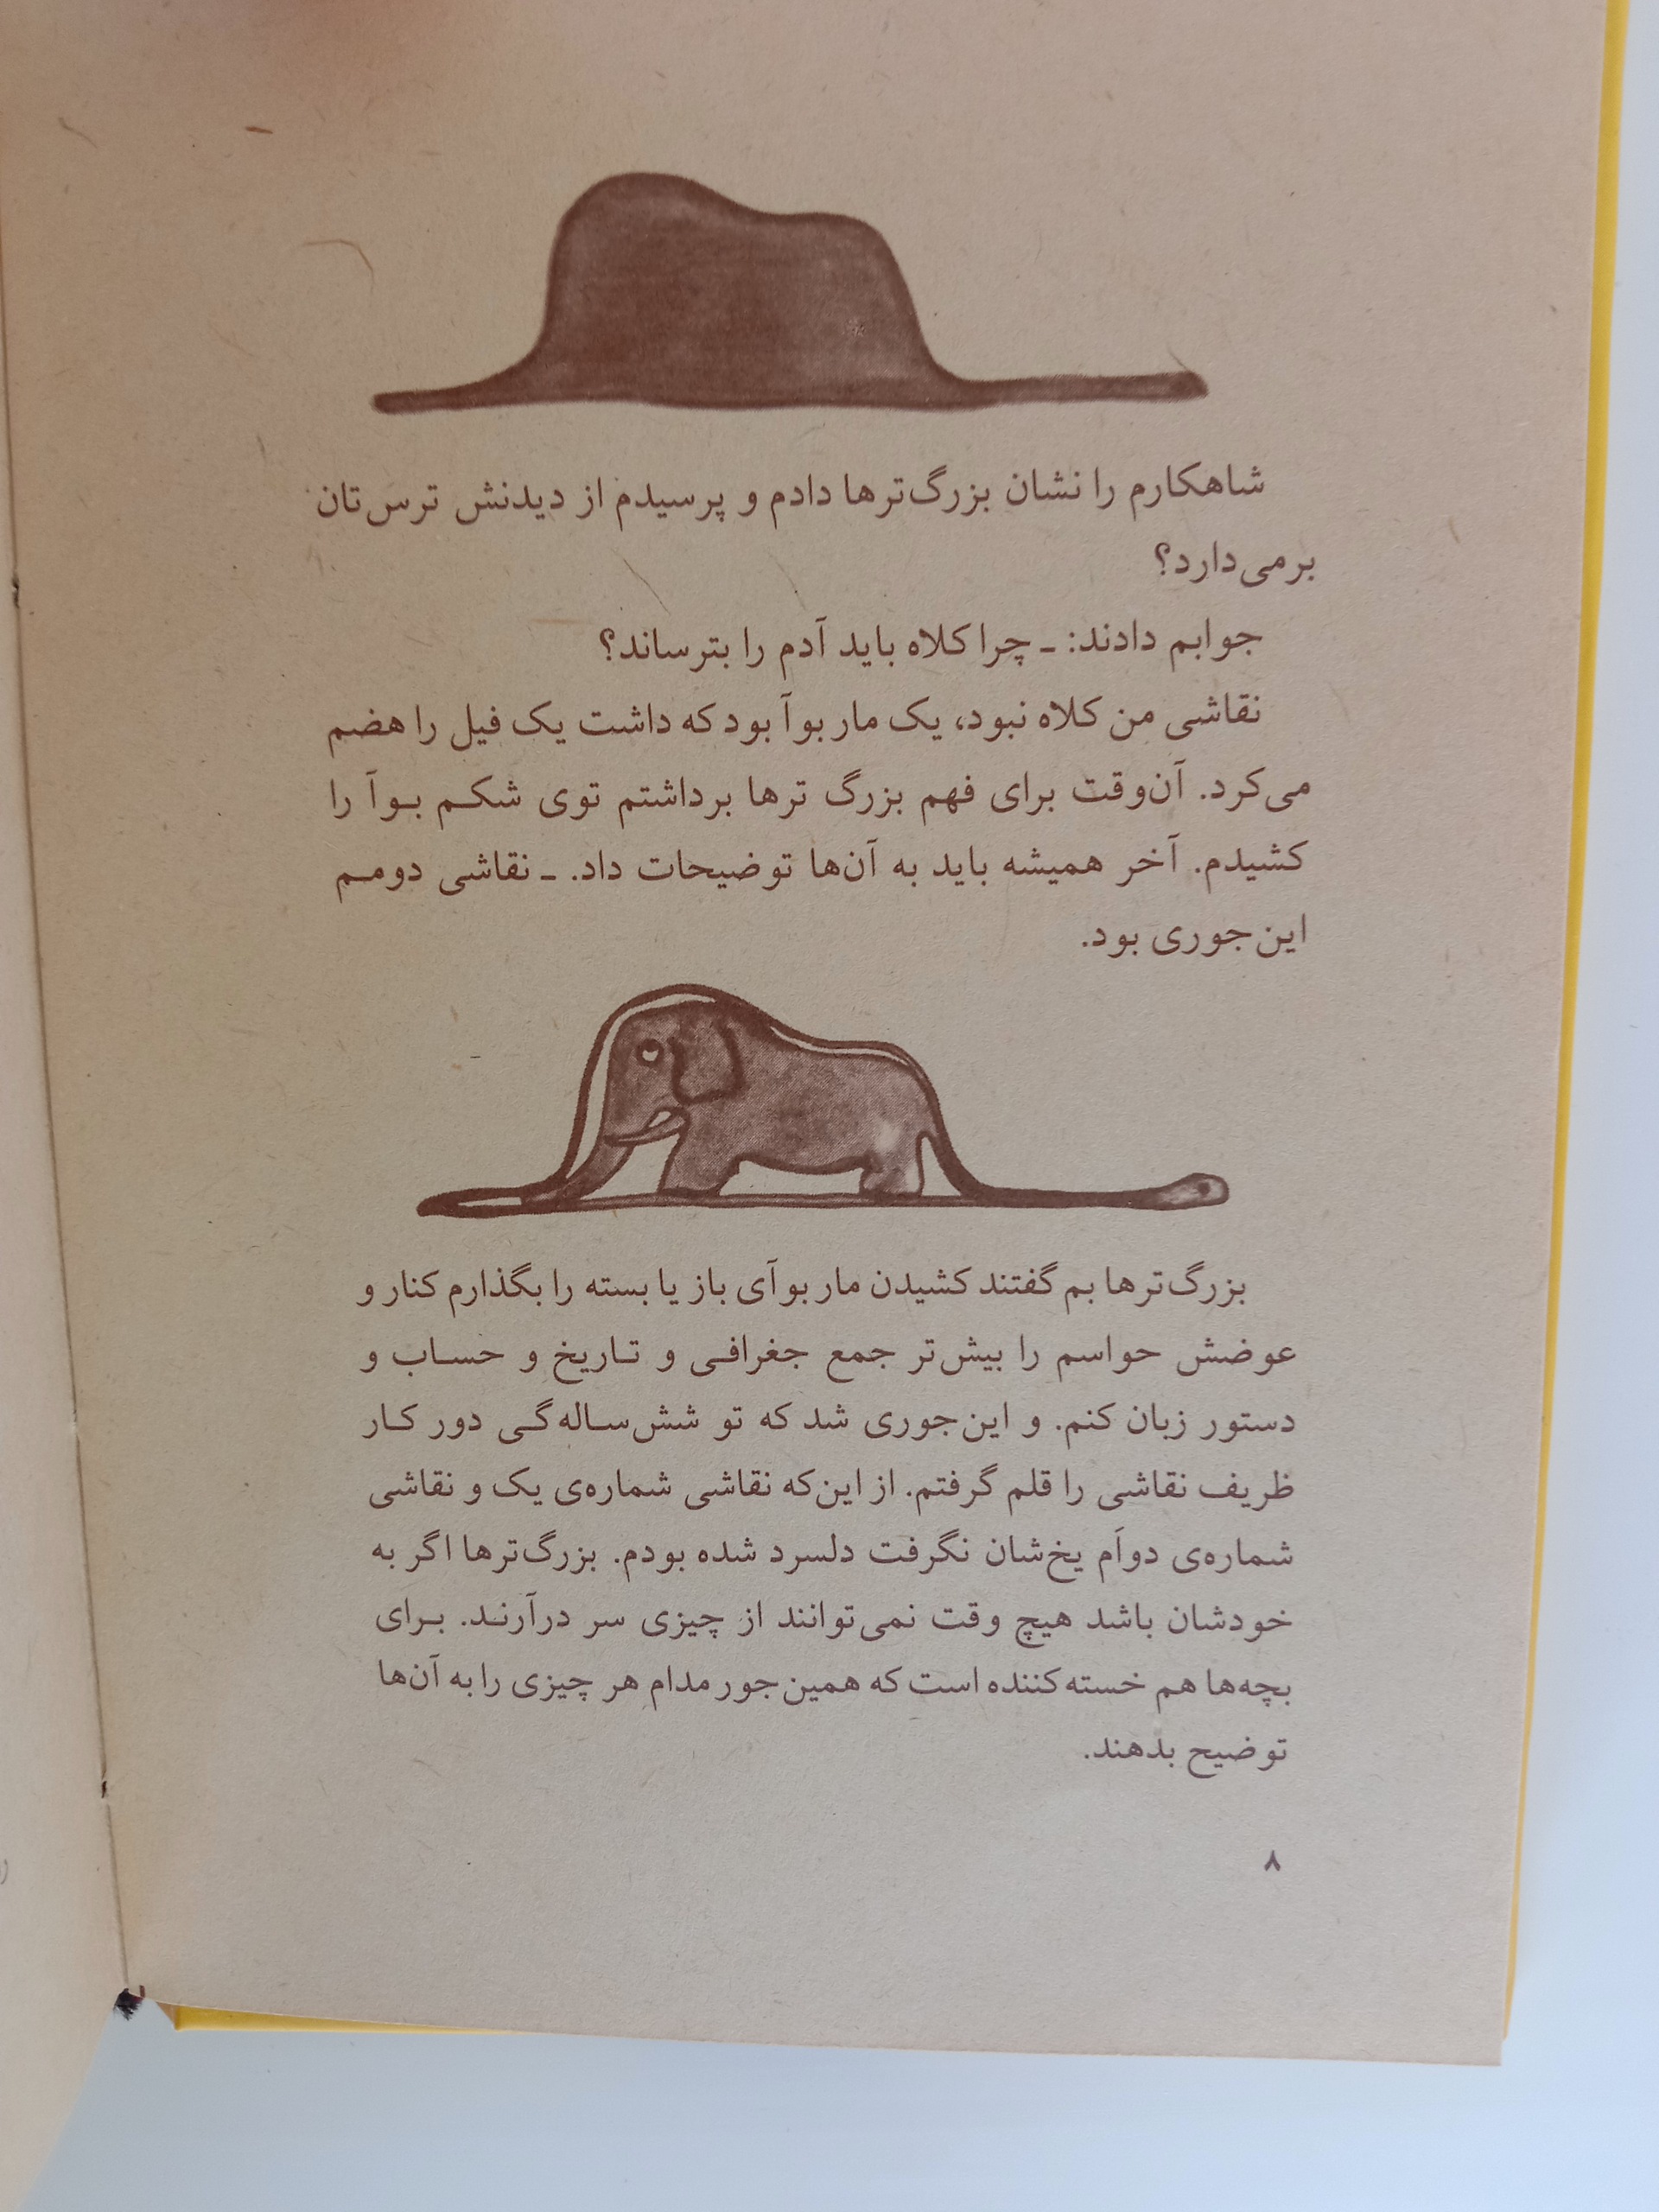 شاهکارم را نشان بزرگ‌ترها دادم و پرسیدم از دیدنش ترس‌تان
برمی‌دارد؟
جوابم دادند: ـ چرا کلاه باید آدم را بترساند؟
نقاشی من کلاه نبود، یک مار بوآ بود که داشت یک فیل را هضم
می‌کرد. آن‌وقت برای فهم بزرگ ترها برداشتم توی شکم بوآ را
کشیدم. آخر همیشه باید به آن‌ها توضیحات داد. ـ نقاشی دومم
این‌جوری بود.
بزرگ‌ترها بم گفتند کشیدن مار بوآی باز یا بسته را بگذارم کنار و
عوضش حواسم را بیش‌تر جمع جغرافی و تاریخ و حساب و
دستور زبان کنم. و این‌جوری شد که تو شش‌ساله‌گی دور کار
ظریف نقاشی را قلم گرفتم. از این‌که نقاشی شماره‌ی یک و نقاشی
شماره‌ی دواَم یخ‌شان نگرفت دلسرد شده بودم. بزرگ‌ترها اگر به
خودشان باشد هیچ وقت نمی‌توانند از چیزی سر درآرند. برای
بچه‌ها هم خسته‌کننده است که همین‌جور مدام هر چیزی را به آن‌ها
توضیح بدهند.
۸